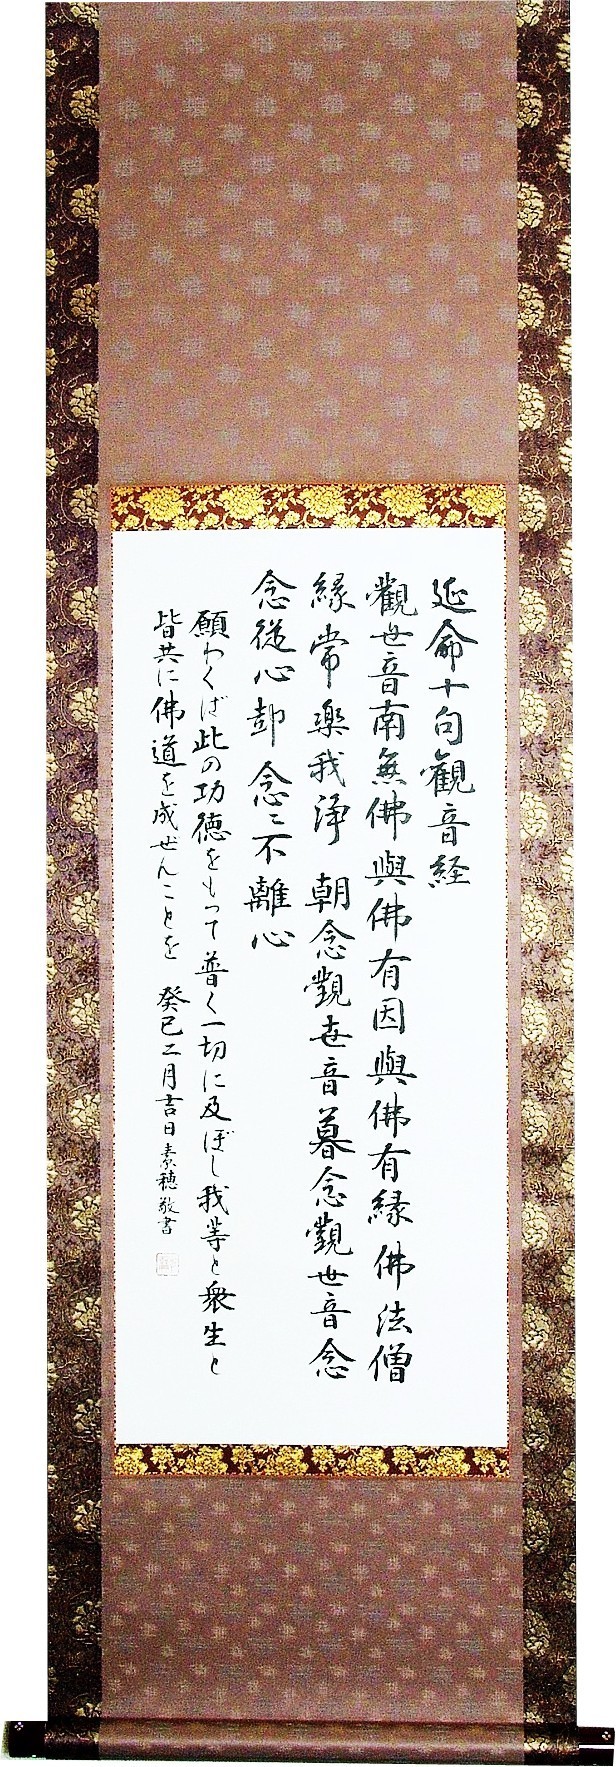 延命十句觀音経
觀世音南無佛與佛有因與佛有縁 佛法僧
縁常樂我浄 朝念觀世音暮念觀世音念
念従心起 念〻不離心
願わくば此の功徳をもって普く一切に及ぼし我等と衆生と
皆共に佛道を成ぜんことを 癸巳二月吉日素穂敬書